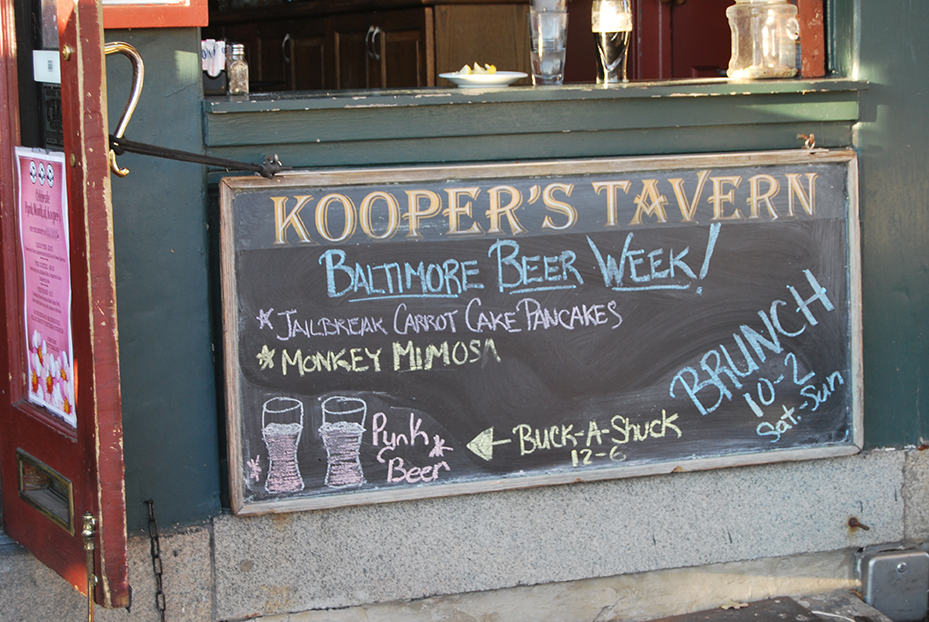 KOOPER'S TAVERN
BALTIMORE BEER WEEK!
JAILBREAK CARROT CAKE PANCAKES
MONKEY MIMOSA
BRUNCH
10-2
Sat.-Sun
Pynk
Beer
BUCK-A-SHUCK
12-6
Celebrate